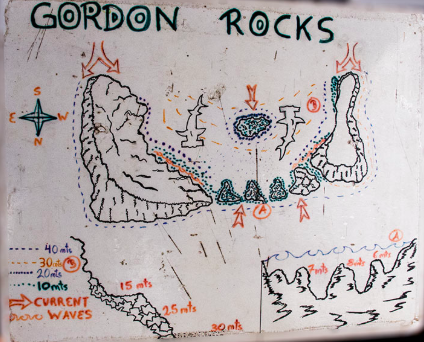 GORDON ROCKS
S
E W
N
B
A
40 mts
30 mts
20 mts
10 mts
CURRENT
WAVES
B
15 mts
25 mts
30 mts
A
7 mts
8 mts
6 mts